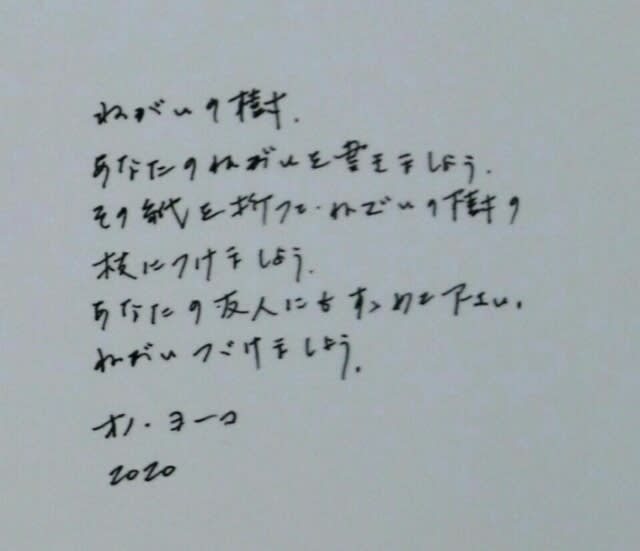 ねがいの樹.
あなたのねがいを書きましよう.
その紙を折つて.ねがいの樹の
枝につけましよう.
あなたの友人にもすゝめて下さい.
ねがいつゞけましよう.
オノ・ヨーコ
2020